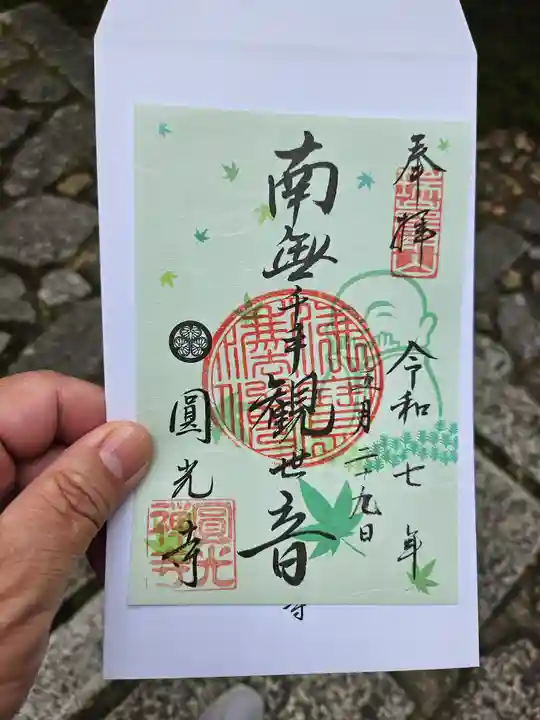 奉拝
令和七年
月二十九日
南無千手観世音
圓光寺
圓光禅寺
寺